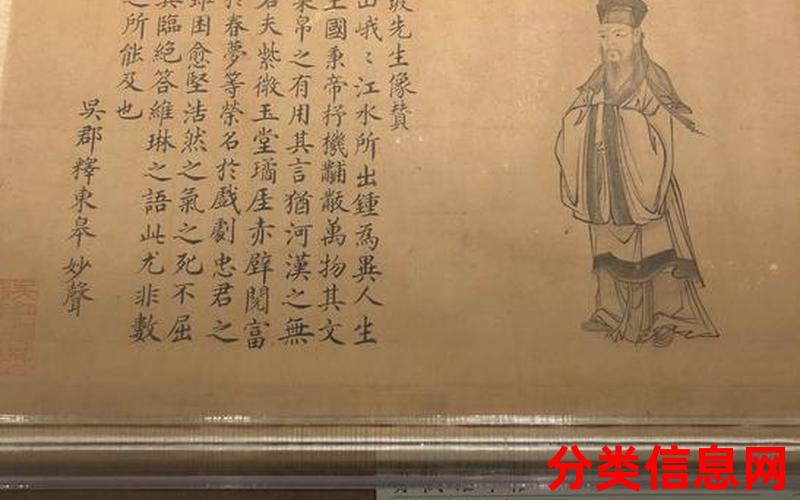 坡先生像贊
山峨〻江水所出鍾為異人生
王國秉帝杼機黼黻萬物其文
粟帛之有用其言猶河漢之無
若夫紫微玉堂璚厓赤壁閱富
於春夢等榮名於戲劇忠君之
雖困愈堅浩然之氣之死不屈
其臨絕答維琳之語此尤非數
之所能及也
吳郡釋東皋妙聲
分类信息网